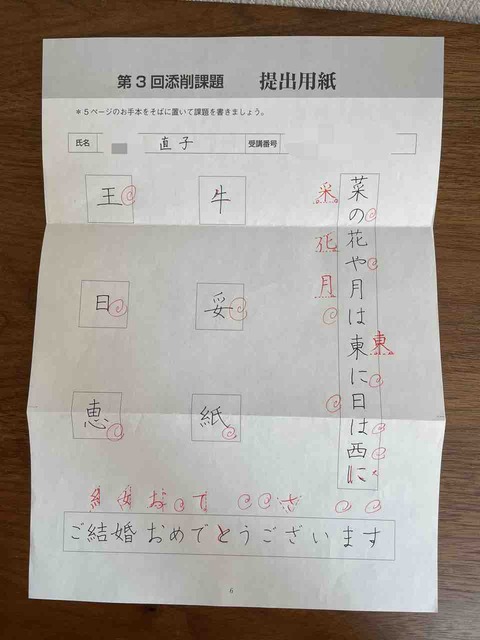 第3回添削課題 提出用紙
＊5ページのお手本をそばに置いて課題を書きましょう。
氏名 直子 受講番号
菜の花や月は東に日は西に
采 花 月 東
王 牛
日 妥
恵 紙
お で ざ
ご結婚おめでとうございます
6